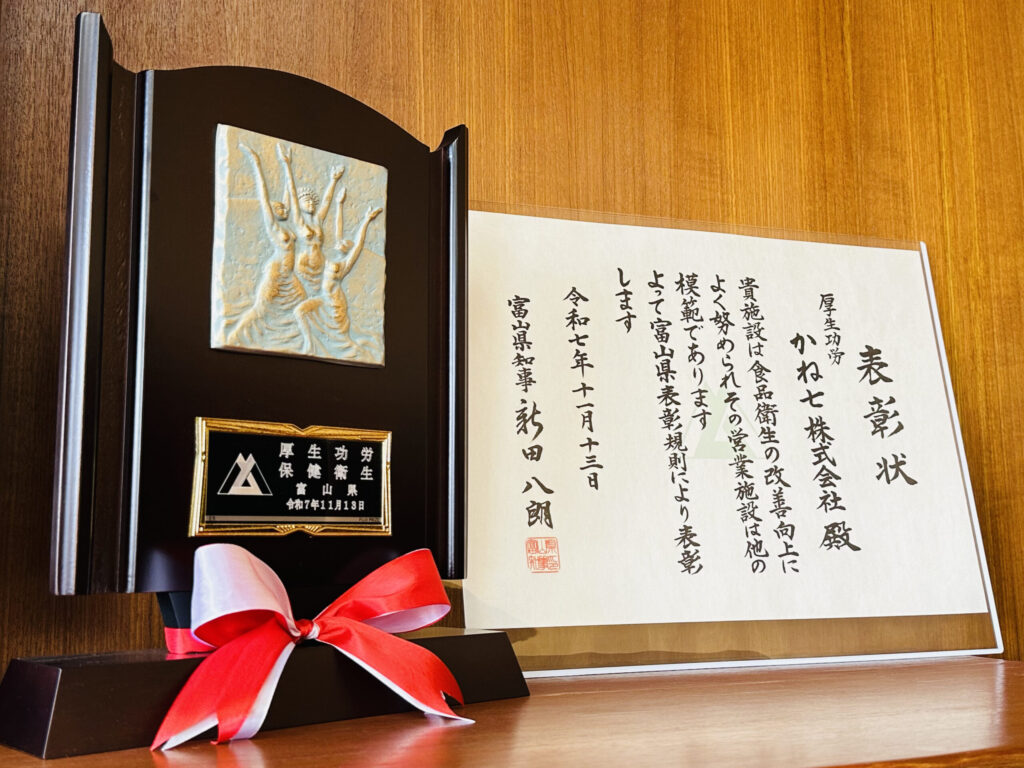 厚生功労
保健衛生
富山県
令和7年11月13日
表彰状
厚生功労
かね七株式会社 殿
貴施設は食品衛生の改善向上に
よく努められその営業施設は他の
模範であります
よって富山県表彰規則により表彰
します
令和七年十一月十三日
富山県知事 新田八朗